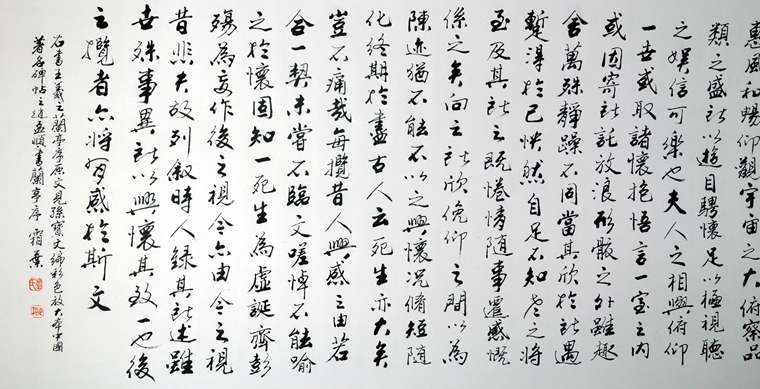 惠風和暢仰觀宇宙之大俯察品
類之盛所以遊目騁懷足以極視聽
之娛信可樂也夫人之相與俯仰
一世或取諸懷抱悟言一室之內
或因寄所託放浪形骸之外雖趣
舍萬殊靜躁不同當其欣於所遇
暫得於己怏然自足不知老之將
至及其所之既惓情隨事遷感慨
係之矣向之所欣俛仰之間以為
陳迹猶不能不以之興懷況脩短隨
化終期於盡古人云死生亦大矣
豈不痛哉每攬昔人興感之由若
合一契未嘗不臨文嗟悼不能喻
之於懷固知一死生為虛誕齊彭
殤為妄作後之視今亦由今之視
昔悲夫故列叙時人錄其所述雖
世殊事異所以興懷其致一也後
之攬者亦將有感於斯文
右書王羲之蘭亭序原文見孫寶文編彩色放大本中國
著名碑帖之趙孟頫書蘭亭序 霜葉